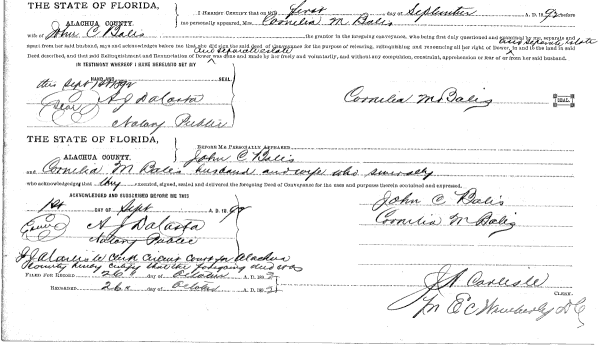 THE STATE OF FLORIDA,
ALACHUA COUNTY.
I HEREBY CERTIFY that on this first day of September A. D. 1892 before
me personally appeared, Mrs. Cornelia M Balis
wife of John C Balis the grantor in the foregoing conveyance, who being first duly questioned and examined by me, separate and
and separate estate
apart from her said husband, says and acknowledges before me that she did sign the said deed of Conveyance for the purpose of releasing, relinquishing and renouncing all her right of Dower, in and to the land in said
and separate estate
Deed described, and that said Relinquishment and Renunciation of Dower was done and made by her freely and voluntarily, and without any compulsion, constraint, apprehension or fear of or from her said husband.
IN TESTIMONY WHEREOF I HAVE HEREUNTO SET MY
HAND AND SEAL
this Sept 1st 1892
Seal A J DaCosta
Notary Public
Cornelia M Balis SEAL.
THE STATE OF FLORIDA,
ALACHUA COUNTY.
BEFORE ME PERSONALLY APPEARED
John C Balis
and Cornelia M Balis husband and wife who severally
who acknowledging that they executed, signed, sealed and delivered the foregoing Deed of Conveyance for the uses and purposes therein contained and expressed.
ACKNOWLEDGED AND SUBSCRIBED BEFORE ME THIS
1st DAY OF Sept A. D. 1892
Seal A J DaCosta
Notary Public
John C Balis
Cornelia M Balis
Clerk Circuit Court for Alachua
County hereby certify that the foregoing deed was
FILED FOR RECORD 26" day of October A. D. 1892
RECORDED 26" day of October A. D. 1892
J A Carlisle
CLERK.
E C Wimberly D C